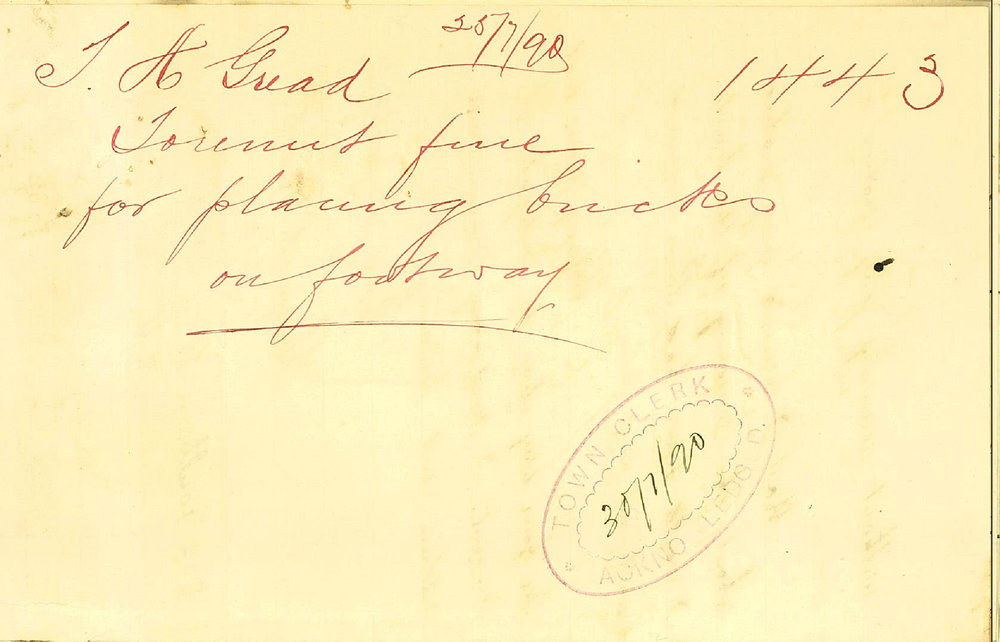 28/7/90
J. H Gread 1443
To remit fine
for placing bricks
on footway
TOWN CLERK
30/7/90
ACKNO LEDG D.